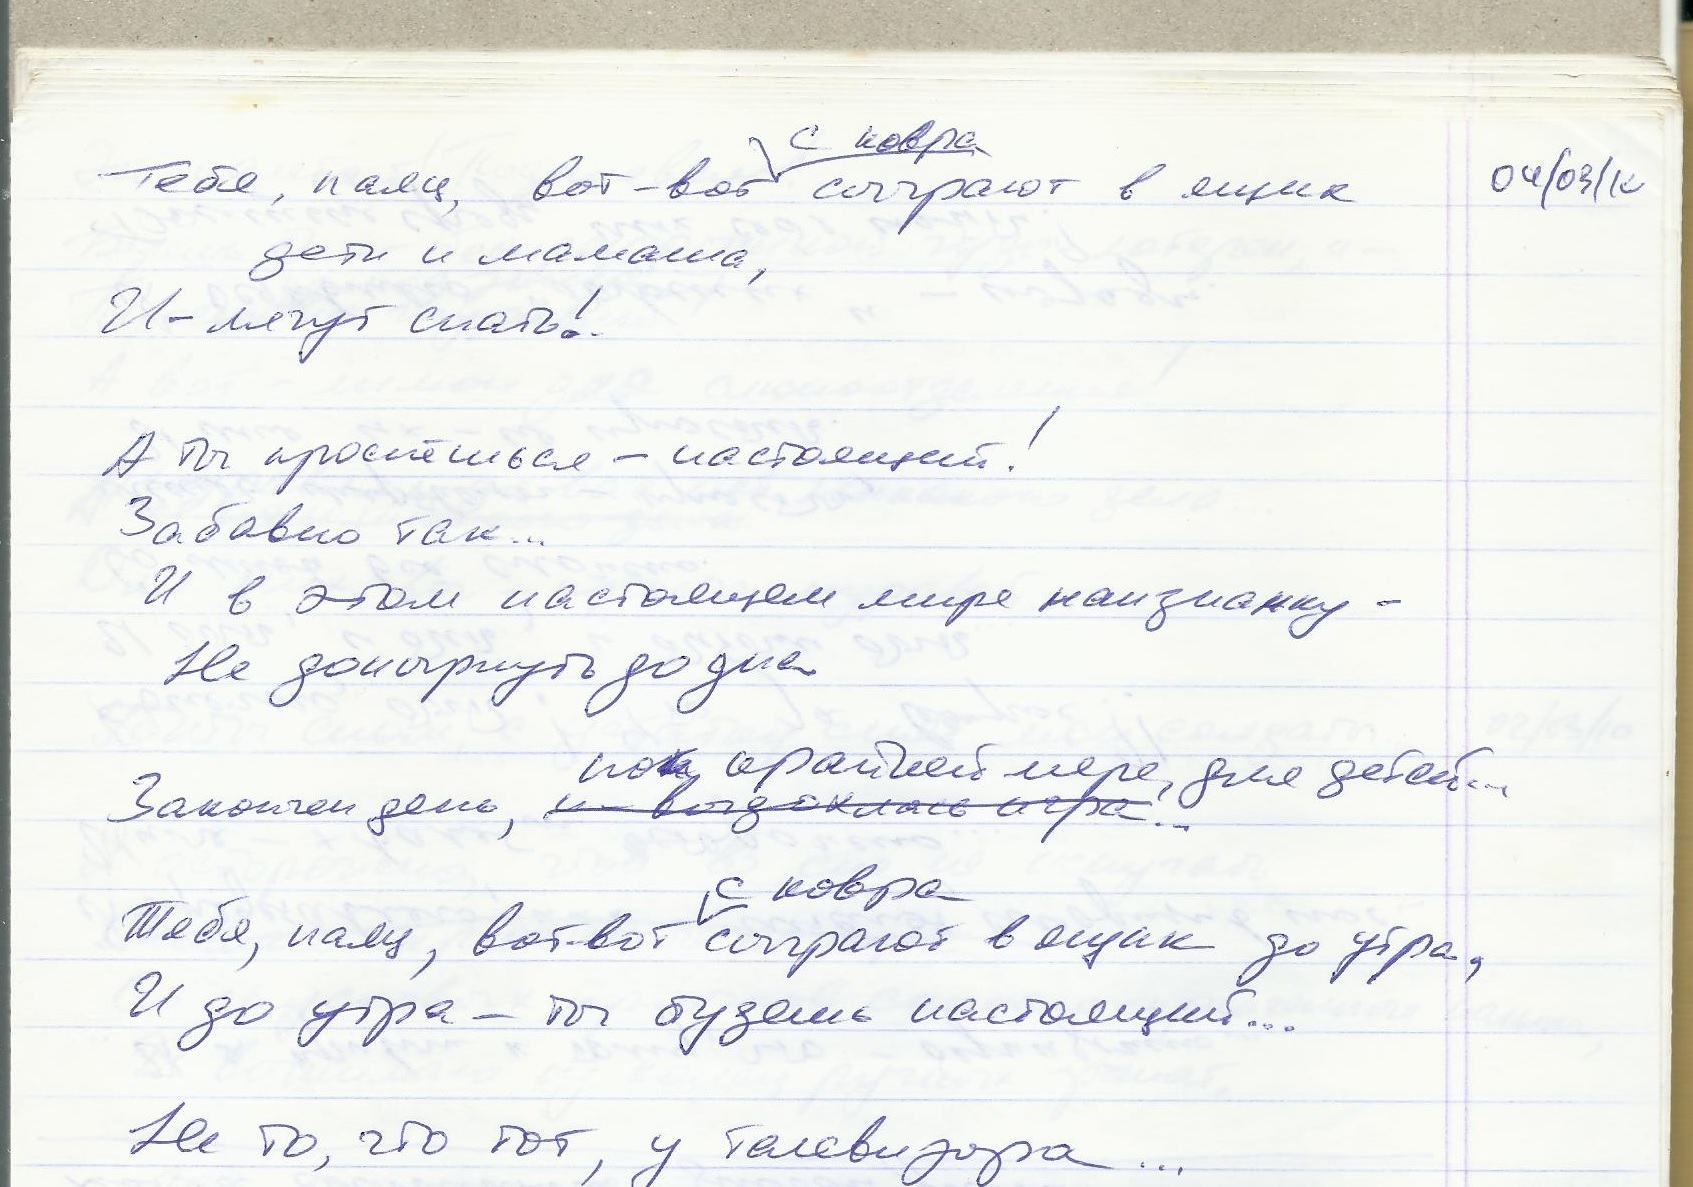 с ковра
Тебя, паяц, вот-вот сыграют в ящик 04/03/10
дети и мамаша,
И – лягут спать!..
А ты проснёшься – настоящий!
Забавно так...
И в этом настоящем мире наизнанку –
Не донырнуть до дна
по крайней мере, для детей...
Закончен день, и – выдохлась игра!..
с ковра
Тебя, паяц, вот-вот сыграют в ящик до утра,
И до утра – ты будешь настоящий...
Не то, что тот, у телевизора...